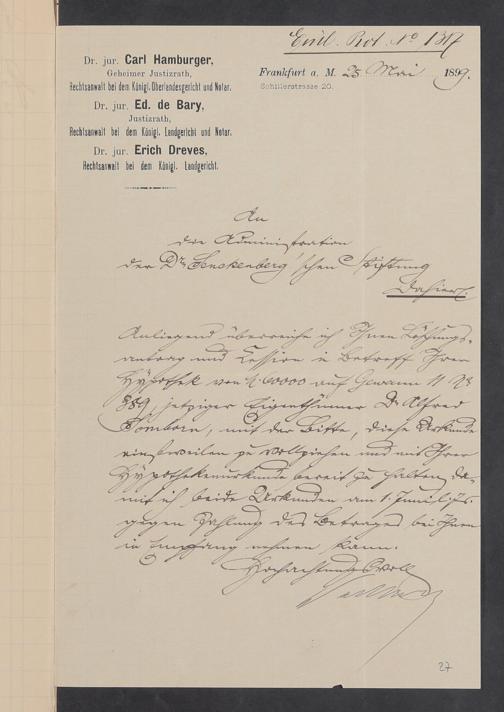 Dr. jur. Carl Hamburger,
Geheimer Justizrath,
Rechtsanwalt bei dem Königl. Oberlandesgericht und Notar.
Dr. jur. Ed. de Bary,
Justizrath,
Rechtsanwalt bei dem Königl. Landgericht und Notar.
Dr. jur. Erich Dreves,
Rechtsanwalt bei dem Königl. Landgericht.
No 1317
Frankfurt a. M. 25 Mai 1899.
Schillerstrasse 20.
An
die Administration
der Dr. Senckenberg'schen Stiftung
Dahier.
Anliegend überreiche ich Ihnen Löschungs-
antrag und Cession in Betreff Ihrer
Hypothek von 60000 auf Gewann 11 No
889, jetziger Eigenthümer Dr. Alfred
mit der Bitte, diese Urkunde
einstweilen zu vollziehen und mit Ihrer
Hypothekenurkunde bereit zu halten, da-
mit ich beide Urkunden am 1. Juni
gegen Zahlung des Betrages bei Ihnen
in Empfang nehmen kann.
Hochachtungsvoll
27